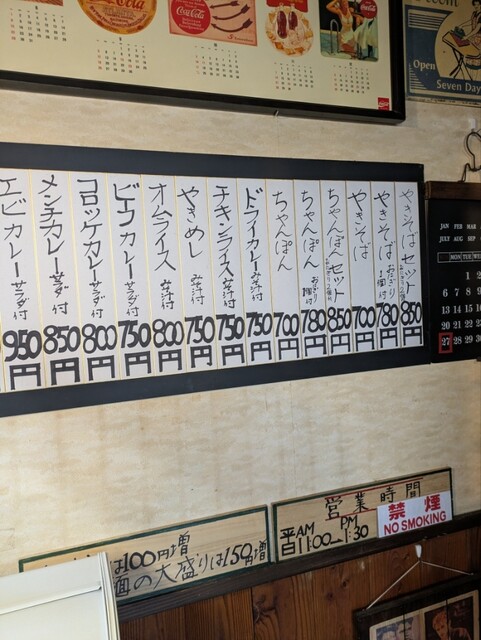 Coca-Cola
Open
Seven Day
やきそばセット
850円
やきそば おにぎり1個付
780円
やきそば
700円
ちゃんぽんセット
850円
ちゃんぽん おにぎり1個付
780円
ちゃんぽん
700円
ドライカレー みそ汁付
750円
チキンライス みそ汁付
750円
やきめし みそ汁付
750円
オムライス みそ汁付
800円
ビーフカレー サラダ付
750円
コロッケカレー サラダ付
800円
メンチカレー サラダ付
850円
エビカレー サラダ付
950円
JAN FEB MAR
JULY AUG SEP
MON TUE
1 2
6 7 8 9
13 14 15 16
20 21 22 23
27 28 29 30
は100円増
麺の大盛りは150円増
営業時間
平日 AM11:00〜PM1:30
禁煙
NO SMOKING